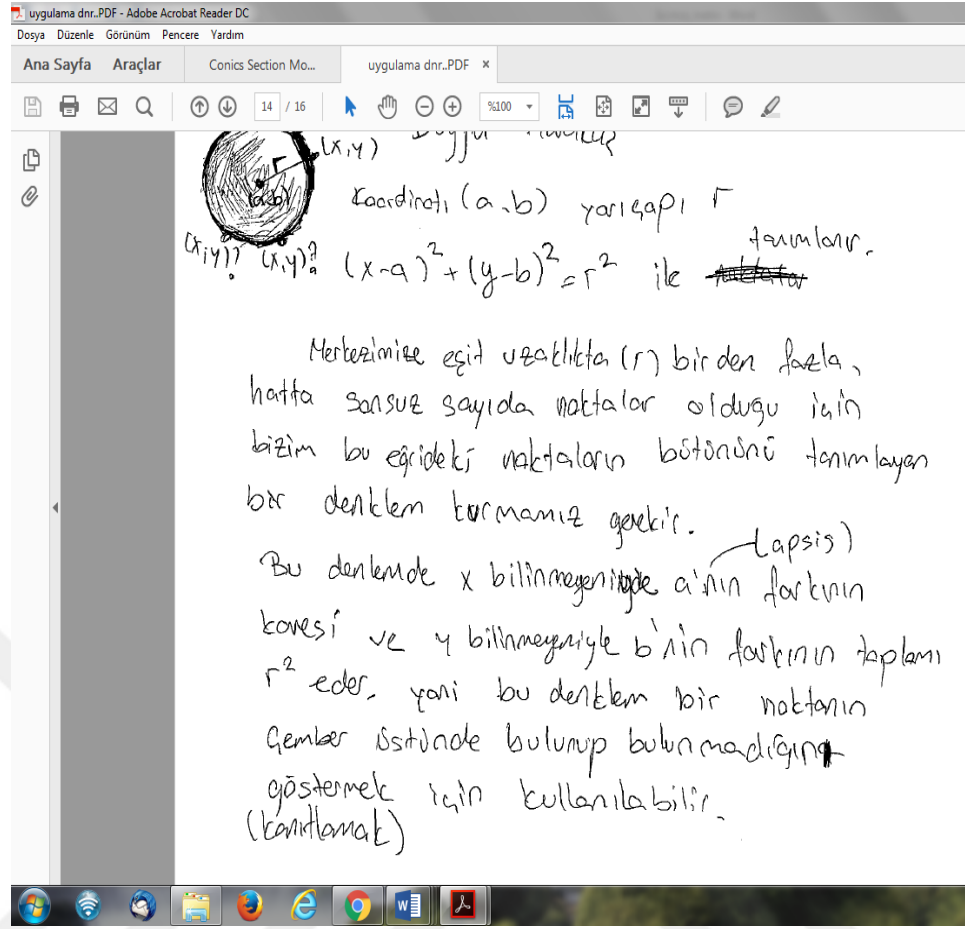 uygulama dnr..PDF - Adobe Acrobat Reader DC
Dosya Düzenle Görünüm Pencere Yardım
Ana Sayfa Araçlar Conics Section Mo... uygulama dnr..PDF ×
14 / 16 %100
(x,y)
r
(a,b)
Koordinatı (a,b) yarıçapı r
(x,y)? (x,y)? (x-a)²+(y-b)²=r² ile tanımlanır.
Merkezimize eşit uzaklıkta (r) birden fazla,
hatta sonsuz sayıda noktalar olduğu için
bizim bu eğrideki noktaların bütününü tanımlayan
bir denklem kurmamız gerekir.
(apsis)
Bu denlemde x bilinmeyeniyle a'nın farkının
karesi ve y bilinmeyeniyle b'nin farkının toplamı
r² eder. yani bu denklem bir noktanın
Çember üstünde bulunup bulunmadığını
göstermek için kullanılabilir.
(kanıtlamak)
W